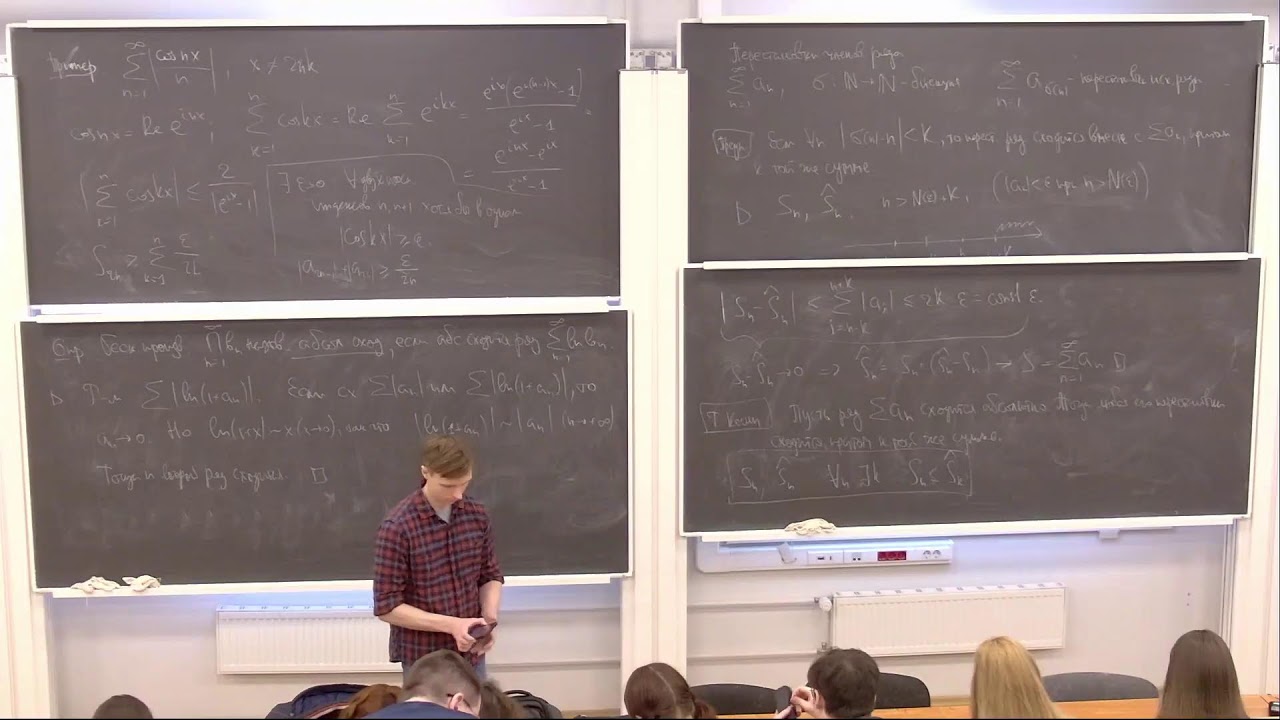 Пример \sum_{n=1}^{\infty} |cos nx / n|, x ≠ 2πk
cos nx = Re e^{inx}; \sum_{k=1}^{n} cos kx = Re \sum_{k=1}^{n} e^{ikx} = e^{ix}(e^{ -1)/(e^{ix} - 1) =
|\sum_{k=1}^{n} cos kx| ≤ 2/|e^{ix} - 1|
∃ ε>0 ∀
n, n+1 хотя бы в одном
|cos kx| ≥ ε.
S_{2n} ≥ \sum_{k=1}^{n} ε/2k
≥ ε/2n
Опр. беск произв \prod_{n=1}^{∞} b_n назов. абсол сход, если абс сходится ряд \sum_{n=1}^{∞} ln b_n.
▷ Т-м \sum |ln(1+a_n)|. Если сх \sum|a_n| или \sum|ln(1+a_n)|, то
a_n→0. Но ln(1+x) ~ x (x→0), так что |ln(1+a_n)| ~ |a_n| (n→+∞)
Тогда и второй ряд сходится. □
Перестановки членов ряда
\sum_{n=1}^{∞} a_n, σ: N→N - биекция \sum_{n=1}^{∞} a_{σ(n)} - перестановка исх ряда
Предл Если ∀n |σ(n)-n| < K, то перест. ряд сходится вместе с \sum a_n, причем
к той же сумме.
▷ S_n, Ŝ_n. n > N(ε)+K, (|a_n| < ε при n > N(ε))
|S_n - Ŝ_n| ≤ \sum_{j=n-k}^{n+k} |a_j| ≤ 2k · ε = const ε
S_n - Ŝ_n → 0 => Ŝ_n = S_n + (Ŝ_n - S_n) → S = \sum_{n=1}^{∞} a_n □
Т Коши Пусть ряд \sum a_n сходится абсолютно. Тогда любая его перестановка
сходится, причем к той же сумме.
S_n, Ŝ_n ∀n ∃k S_n ≤ Ŝ_k